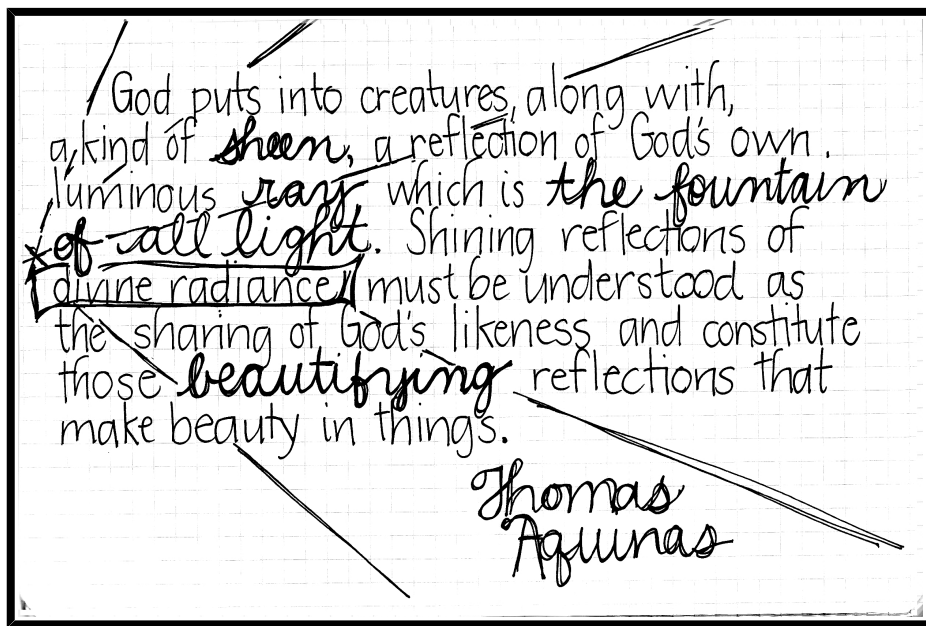 God puts into creatures, along with,
a kind of sheen, a reflection of God's own
luminous ray, which is the fountain
of all light. Shining reflections of
divine radiance must be understood as
the sharing of God's likeness and constitute
those beautifying reflections that
make beauty in things.
Thomas
Aquinas